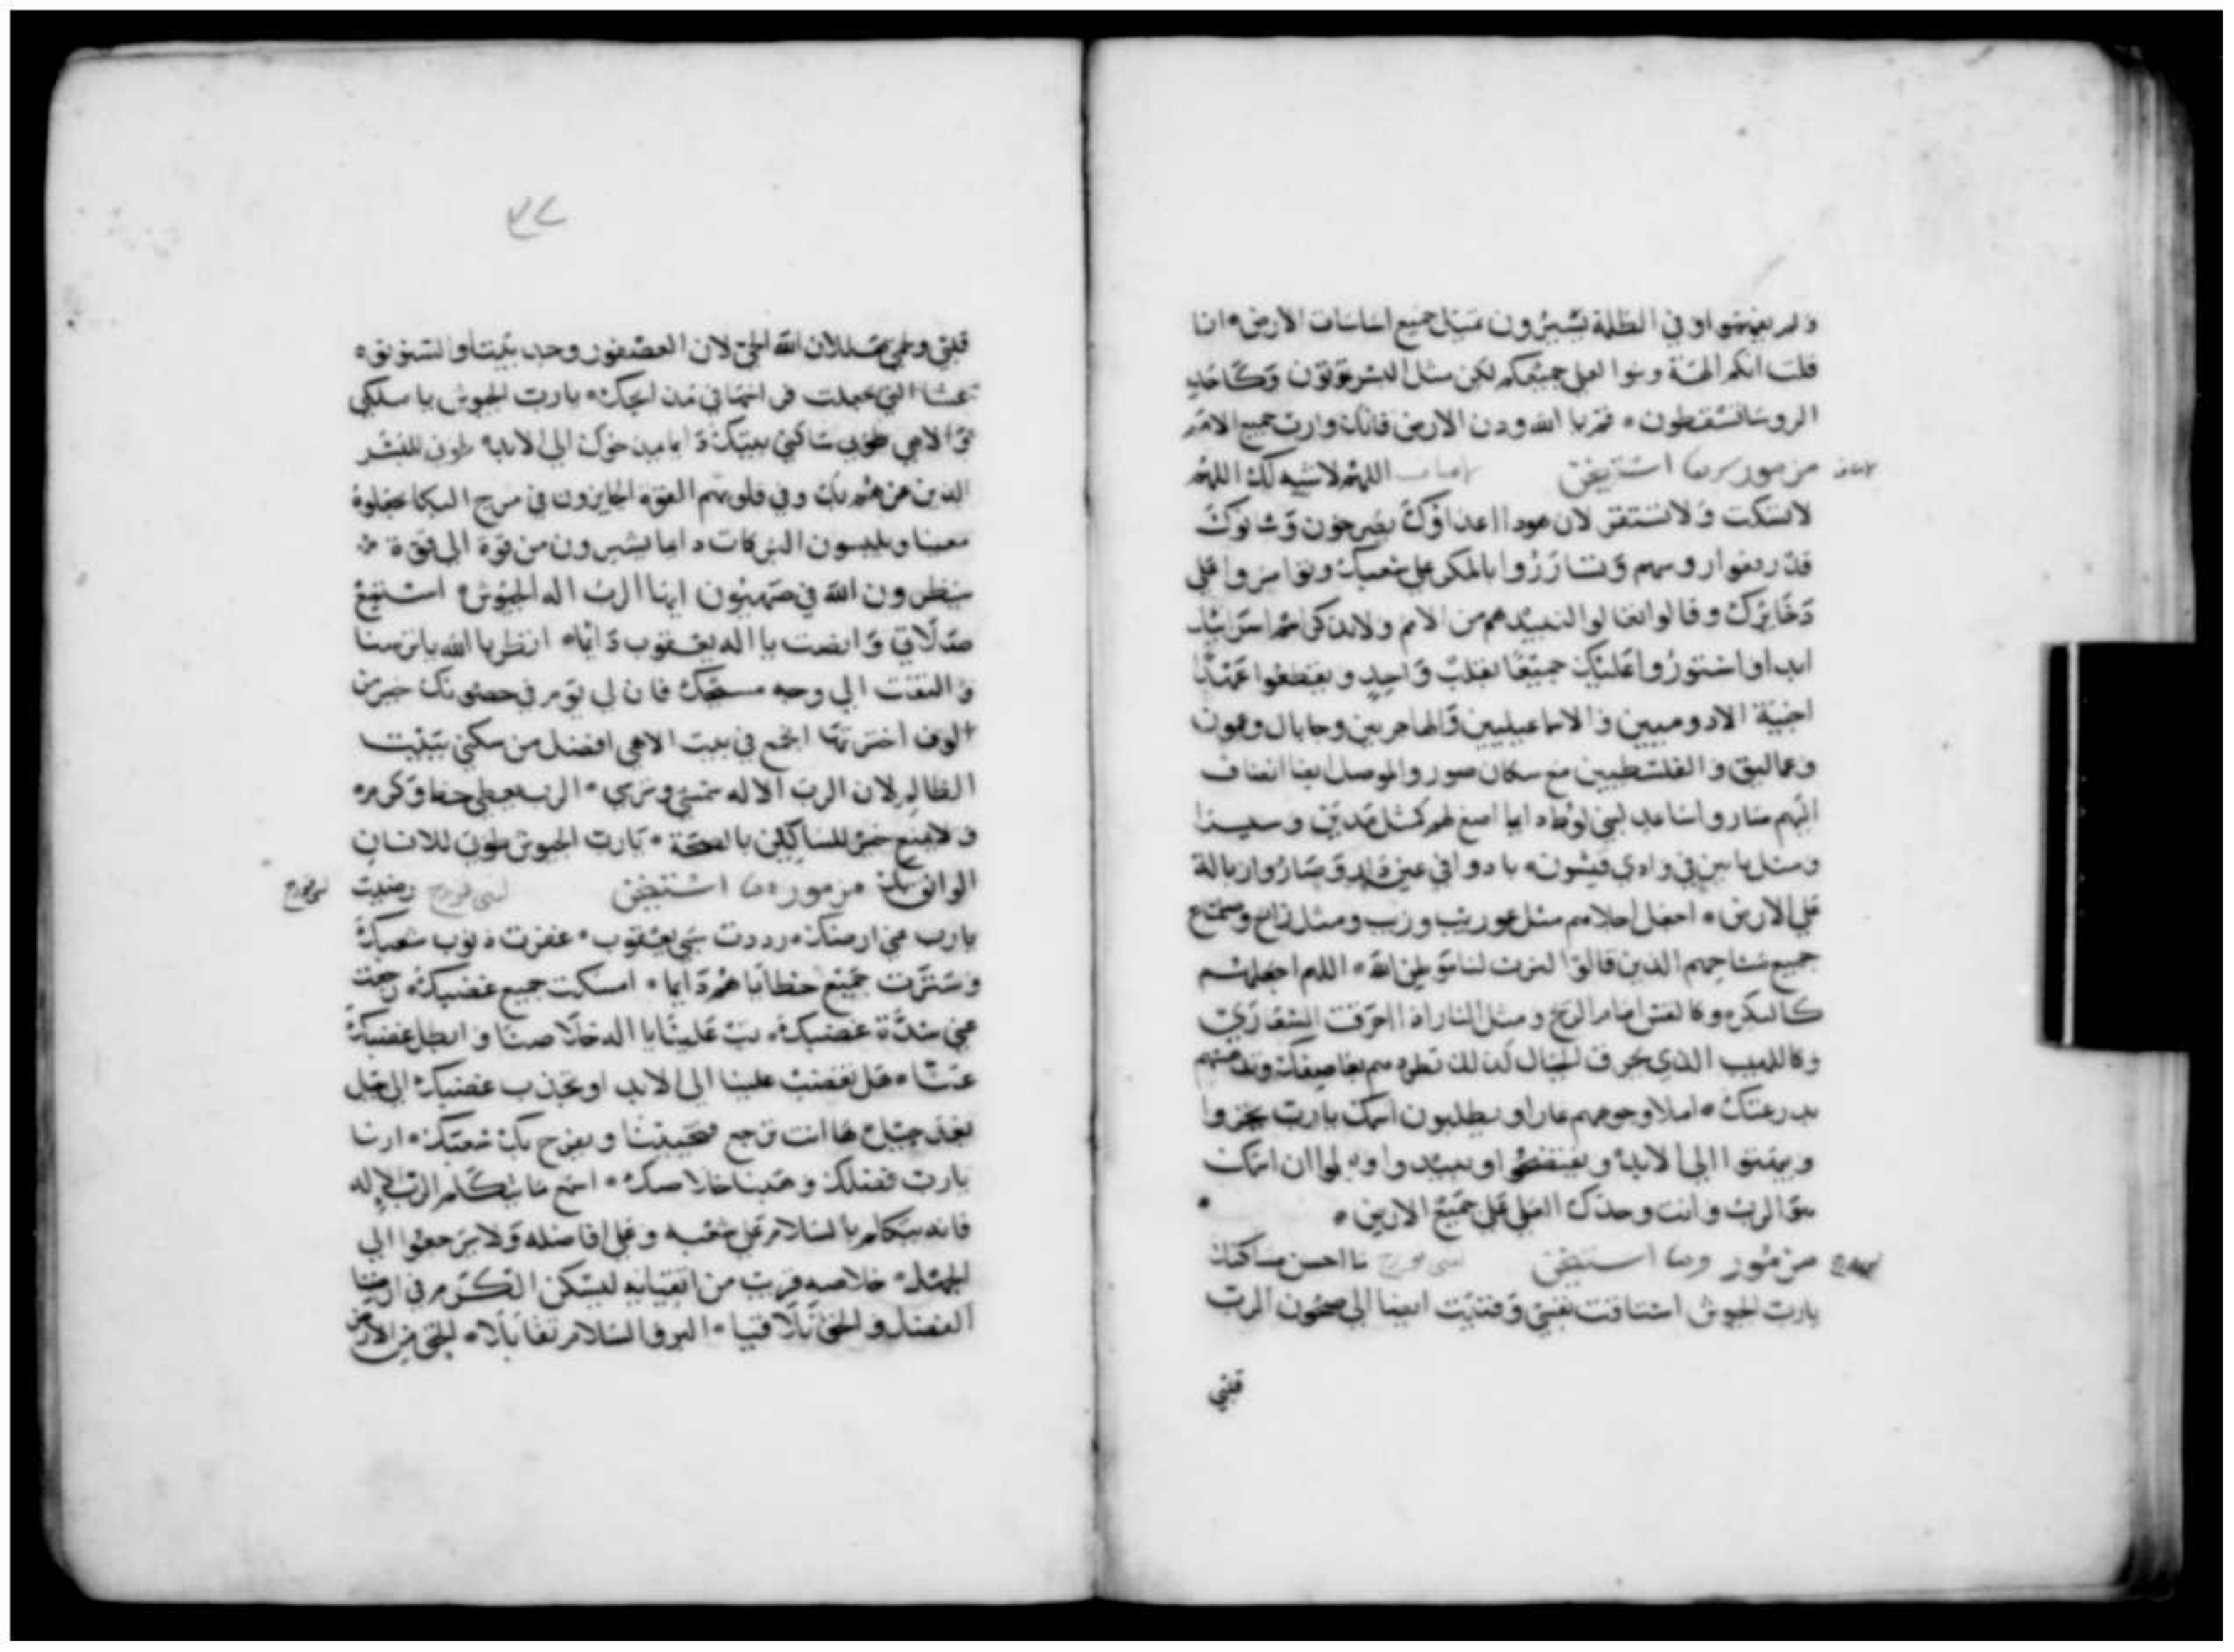 ولم يفهموا وفي الظلمة يسيرون تميل جميع اساسات الارض انا
قلت انكم الهة وبنوا العلي جميعكم لكن مثل البشر تموتون وكاحد
الروسا تسقطون قم يا الله ودن الارض فانك وارث جميع الامم
مزمور استيخن اساف اللهم لا شبيه لك اللهم
لا تسكت ولا تستقر لان هوذا اعداوك يضرخون وشانوك
قد رفعوا روسهم وتسارروا بالمكر على شعبك وتوامروا على
ذخايرك وقالوا تعالوا لنبيدهم من الامم ولا يذكر اسم اسراييل
ابدا واشتوروا عليك جميعا بقلب واحد ويقطعوا عهدا
اجنبية الادوميين والاسماعيليين والهاجريين وجابال وعمون
وعماليق والفلسطيين مع سكان صور والموصل ايضا انضاف
اليهم صاروا ساعد لبني لوط دايما اصنع لهم كمثل مدين وسيسرا
ومثل يابين في وادي قيشون بادوا في عين دور وصاروا زبالة
على الارض اجعل اجلاهم مثل عوريب وزيب ومثل زاح وصمناع
جميع مساحهم الذين قالوا لنرث لنا موطن الله اللهم اجعلهم
كالبكره وكالقش امام الريح ومثل النار اذا احرقت الشعاري
وكاللهيب الذي يحرق الجبال كذلك تطردهم بعاصفك
بدرعتك املا وجوههم عارا ويطلبون اسمك يارب يخزوا
ويبهتوا الى الابد ويفتضحوا ويبيدوا ويعلموا ان اسمك
هو الرب وانت وحدك العلي على جميع الارض
مزمور استيخن لبني قورح ما احسن مساكنك
يارب الجيوش اشتاقت نفسي وفنيت ايضا الى صحون الرب
قلبي
قلبي ولحمي تهللا لان الله الحي لان العصفور وجد بيتا والسنونوه
عشا التي جعلت فراخها في مذابحك يارب الجيوش يا ملكي
والاهي طوبى ساكني بيتك دايما يمدحوك الى الابد طوبى للبشر
الذين عزهم بك وفي قلوبهم القوه الجايزون في مرج البكا جعلوه
معينا ويلبسون البركات دايما يسيرون من قوة الى قوة
ينظرون الله في صهيون ايها الرب اله الجيوش استمع
صلاتي وانصت يا اله يعقوب دايما انظر يا الله يا ترسنا
والتفت الى وجه مسيحك فان لي يوم في حصونك خير من
الوف اخترت ان اخضع في بيت الاهي افضل من سكني ببيت
الظالم لان الرب الاله شمسي وترسي الرب يعطي حنا وكرمه
ولا يمنع خير للسالكين بالصحة يارب الجيوش طوبى للانسان
الواثق بك مزمور استيخن لبني قورح رضيت
يارب عن ارضك رددت سبي يعقوب غفرت ذنوب شعبك
وسترت جميع خطاياهم دايما امسكت جميع غضبك رجعت
عن شدة غضبك تب علينا يا اله خلاصنا وابطل غضبك
عنا هل تغضب علينا الى الابد او تجذب غضبك الى جيل
بعد جيل ها انت ترجع فتحيينا ويفرح بك شعبك ارنا
يارب فضلك وهبنا خلاصك اسمع ما يتكلم الرب الاله
فانه يتكلم بالسلام على شعبه وعلى افاضله ولا يرجعوا الى
الجهل خلاصه قريب من اتقيايه ليسكن التكرم في ارضنا
الفضل والحق تلاقيا البر والسلام تقابلا الحق من الارض